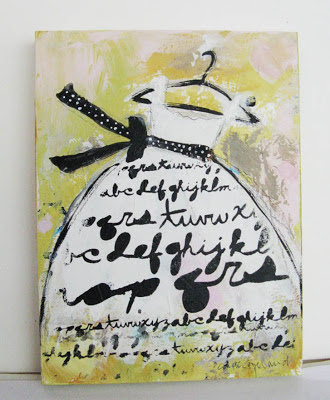 qrstuvwxy
abcdefghijklm
qrstuvwxy
bcdefghijkl
op qrs
qrstuvwxyzabcdefghijklm
efghijklm nopqrstuvwxyzabcdei